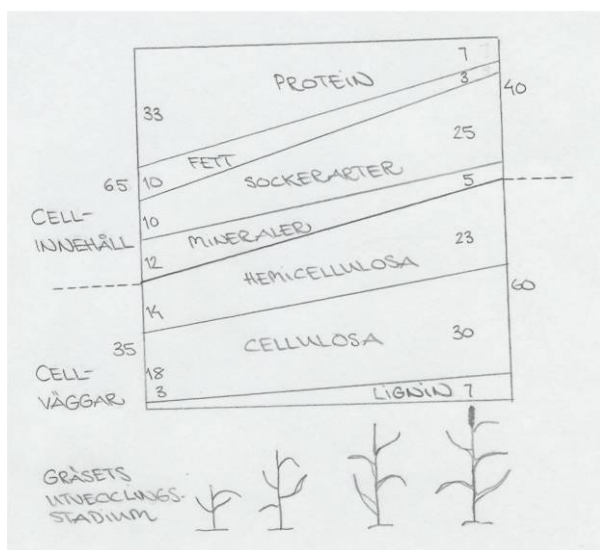 7
PROTEIN
3
40
33
FETT
25
65
10
SOCKERARTER
5
CELL-
INNEHÅLL
10
MINERALER
23
12
HEMICELLULOSA
60
14
CELLULOSA
30
35
CELL-
VÄGGAR
18
3
LIGNIN 7
GRÄSETS
UTVECLINGS-
STADIUM